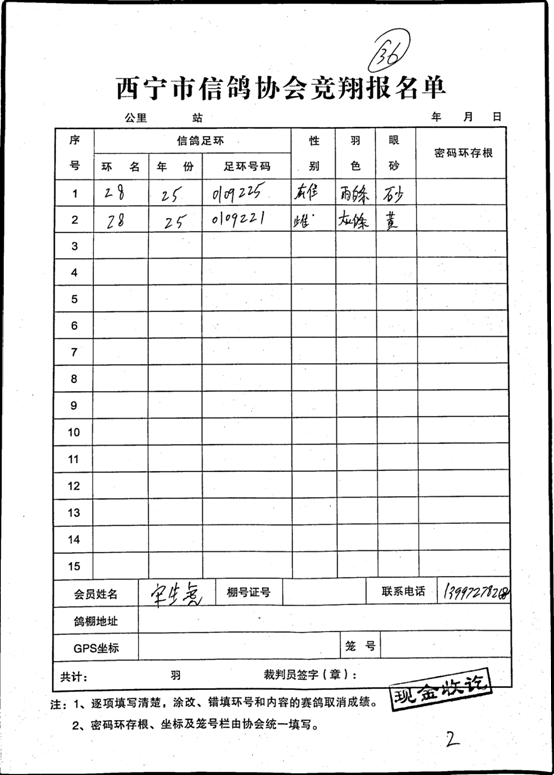 36
西宁市信鸽协会竞翔报名单
公里 站 年 月 日
序号 信鸽足环 性别 羽色 眼砂 密码环存根
环 名 年 份 足环号码
1 28 25 0109225 雄 雨条 砂
2 28 25 0109221 雌 灰条 黄
3
4
5
6
7
8
9
10
11
12
13
14
15
会员姓名 宋生 棚号证号 联系电话 139972782
鸽棚地址
GPS坐标 笼 号
共计: 羽 裁判员签字(章):
现金收讫
注:1、逐项填写清楚,涂改、错填环号和内容的赛鸽取消成绩。
2、密码环存根、坐标及笼号栏由协会统一填写。
2